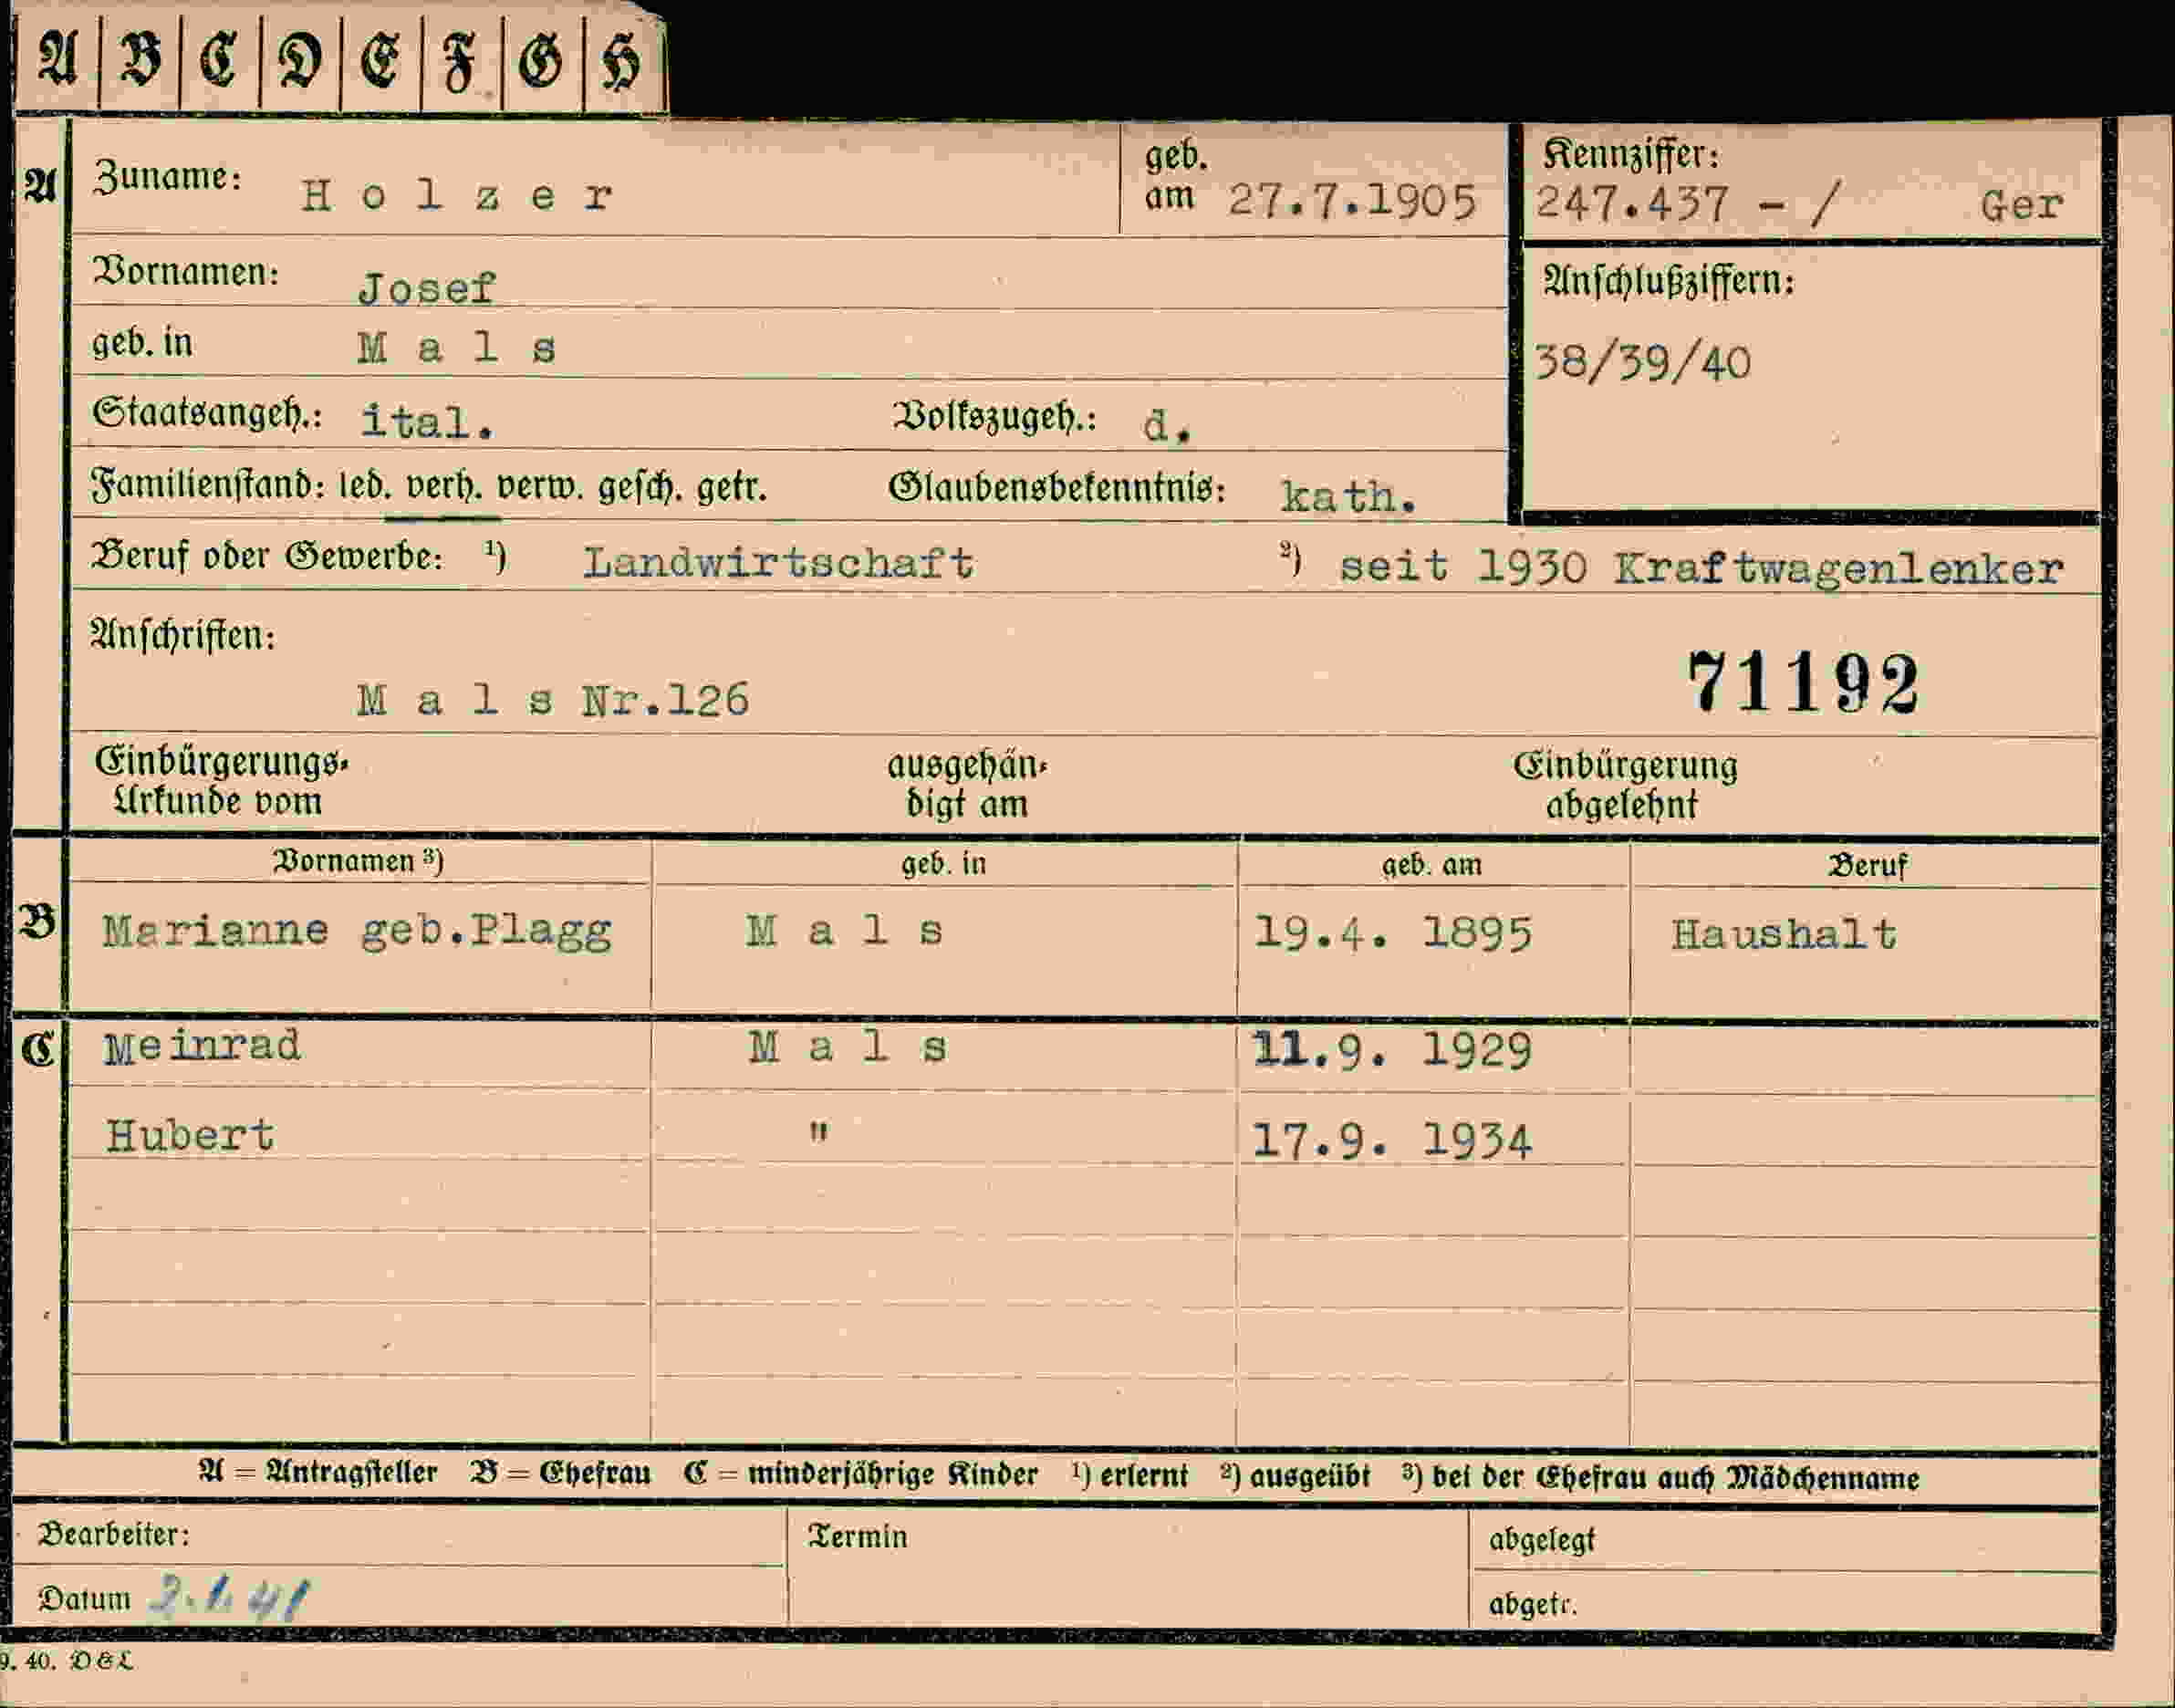 A B C D E F G H
A Zuname: Holzer geb. am 27.7.1905 Kennziffer: 247.437 - / Ger
Vornamen: Josef Anschlußziffern:
geb. in Mals 38/39/40
Staatsangeh.: ital. Volkszugeh.: d.
Familienstand: led. verh. verw. gesch. getr. Glaubensbekenntnis: kath.
Beruf oder Gewerbe: ¹) Landwirtschaft ²) seit 1930 Kraftwagenlenker
Anschriften:
Mals Nr.126 71192
Einbürgerungs- ausgehän- Einbürgerung
Urkunde vom digt am abgelehnt
Vornamen ³) geb. in geb. am Beruf
B Marianne geb.Plagg Mals 19.4. 1895 Haushalt
C Meinrad Mals 11.9. 1929
Hubert " 17.9. 1934
A = Antragsteller B = Ehefrau C = minderjährige Kinder ¹) erlernt ²) ausgeübt ³) bei der Ehefrau auch Mädchenname
Bearbeiter: Termin abgelegt
Datum 2.1.41 abgetr.
9. 40. D&L